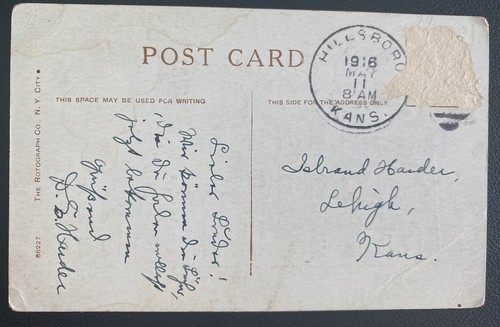 POST CARD
THIS SPACE MAY BE USED FOR WRITING
THIS SIDE FOR THE ADDRESS ONLY
HILLSBORO
1916
MAY
11
8 AM
KANS.
Lieber
Wir können die
die Du haben willst
jetzt bekommen
Grüßend
Harder
Isbrand Harder,
Lehigh,
Kans.
THE ROTOGRAPH CO., N. Y. CITY
86227